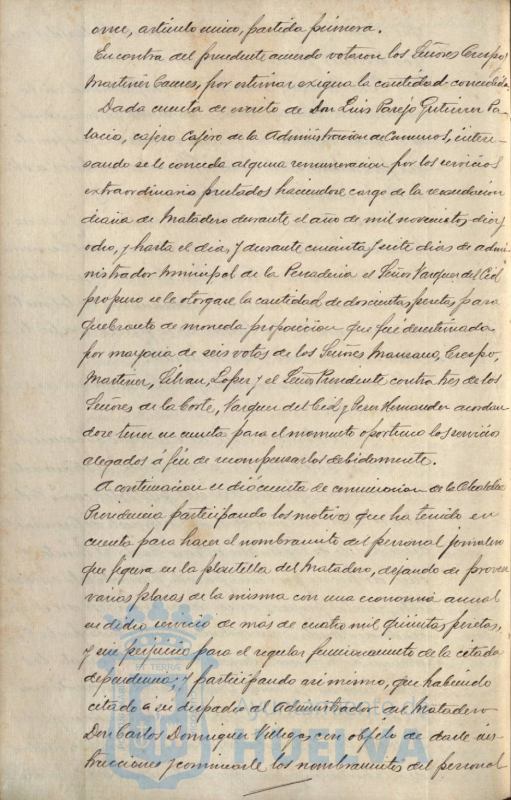 once, artículo único, partida primera.
En contra del precedente acuerdo votaron los Señores Crespo y
Martinez Caceres, por estimar exigua la cantidad concedida.
Dada cuenta de escrito de Don Luis Parejo Gutierrez Pa-
lacio, cajero de la Administracion de Consumos, intere-
sando se le conceda alguna remuneracion por los servicios
extraordinarios prestados haciendose cargo de la recaudacion
diaria de Matadero durante el año de mil novecientos diez y
ocho, y hasta el dia, y durante cincuenta y siete dias de admi-
nistrador municipal de la Pescaderia el Señor Vazquez del Cid
propuso se le otorgase la cantidad de doscientas pesetas para
quebranto de moneda proposicion que fué desestimada
por mayoria de seis votos de los Señores Manzano, Crespo,
Martinez, Galvan, Lopez y el Señor Presidente contra tres de los
Señores de la Corte, Vazquez del Cid y Perez Hernandez acordan
dose tener en cuenta para el momento oportuno los servicios
alegados á fin de recompensarlos debidamente.
A continuacion se dió cuenta de comunicacion de la Alcaldia
Presidencia participando los motivos que ha tenido en
cuenta para hacer el nombramiento del personal jornalero
que figura en la plantilla del Matadero, dejando de proveer
varias plazas de la misma con una economia anual
en dicho servicio de más de cuatro mil quinientas pesetas,
y sin perjuicio para el regular funcionamiento de la citada
dependencia; y participando asi mismo, que habiendo
citado a su despacho al Administrador del Matadero
Don Carlos Dominguez Villegas con objeto de darle ins-
trucciones y comunicarle los nombramientos del personal
HUELVA